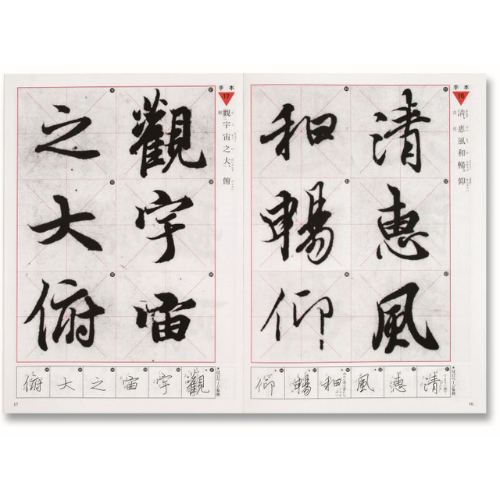 手本
16
清惠風和暢仰
清惠風
和暢仰
清惠風和暢仰
16
手本
17
觀宇宙之大俯
觀宇宙
之大俯
觀宇宙之大俯
17